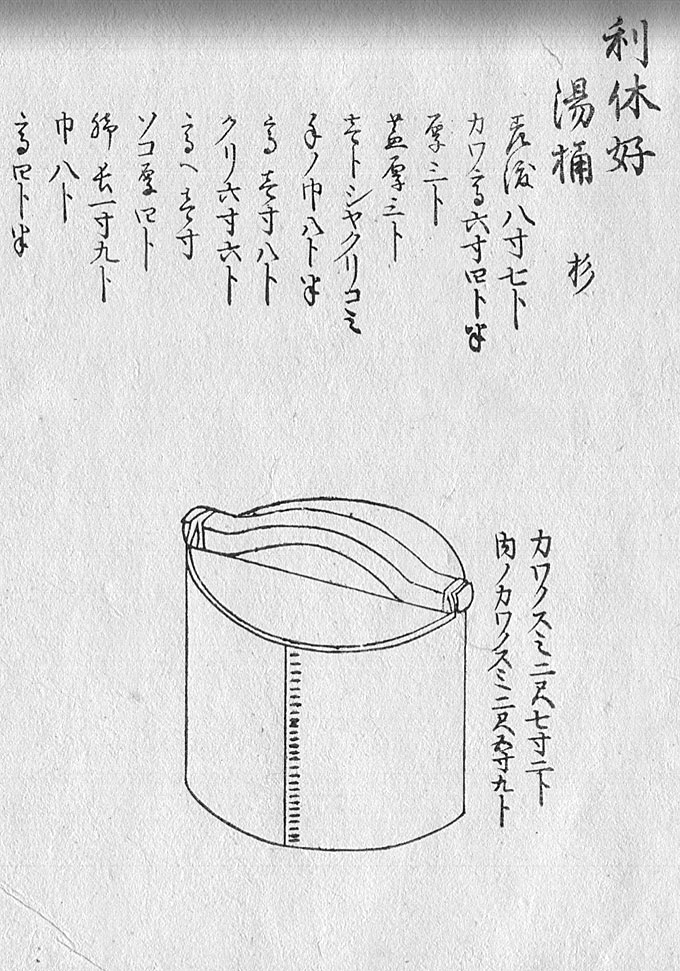 利休好
湯桶 杉
差渡八寸七ト
カワ高六寸四ト半
厚三ト
蓋厚三ト
壱トシヤクリコミ
手ノ巾八ト半
高壱寸八ト
クリ六寸六ト
高へ壱寸
ソコ厚四ト
耳長一寸九ト
巾八ト
高四ト半
カワノスミ二尺七寸二ト
内ノカワノスミ二尺五寸九ト